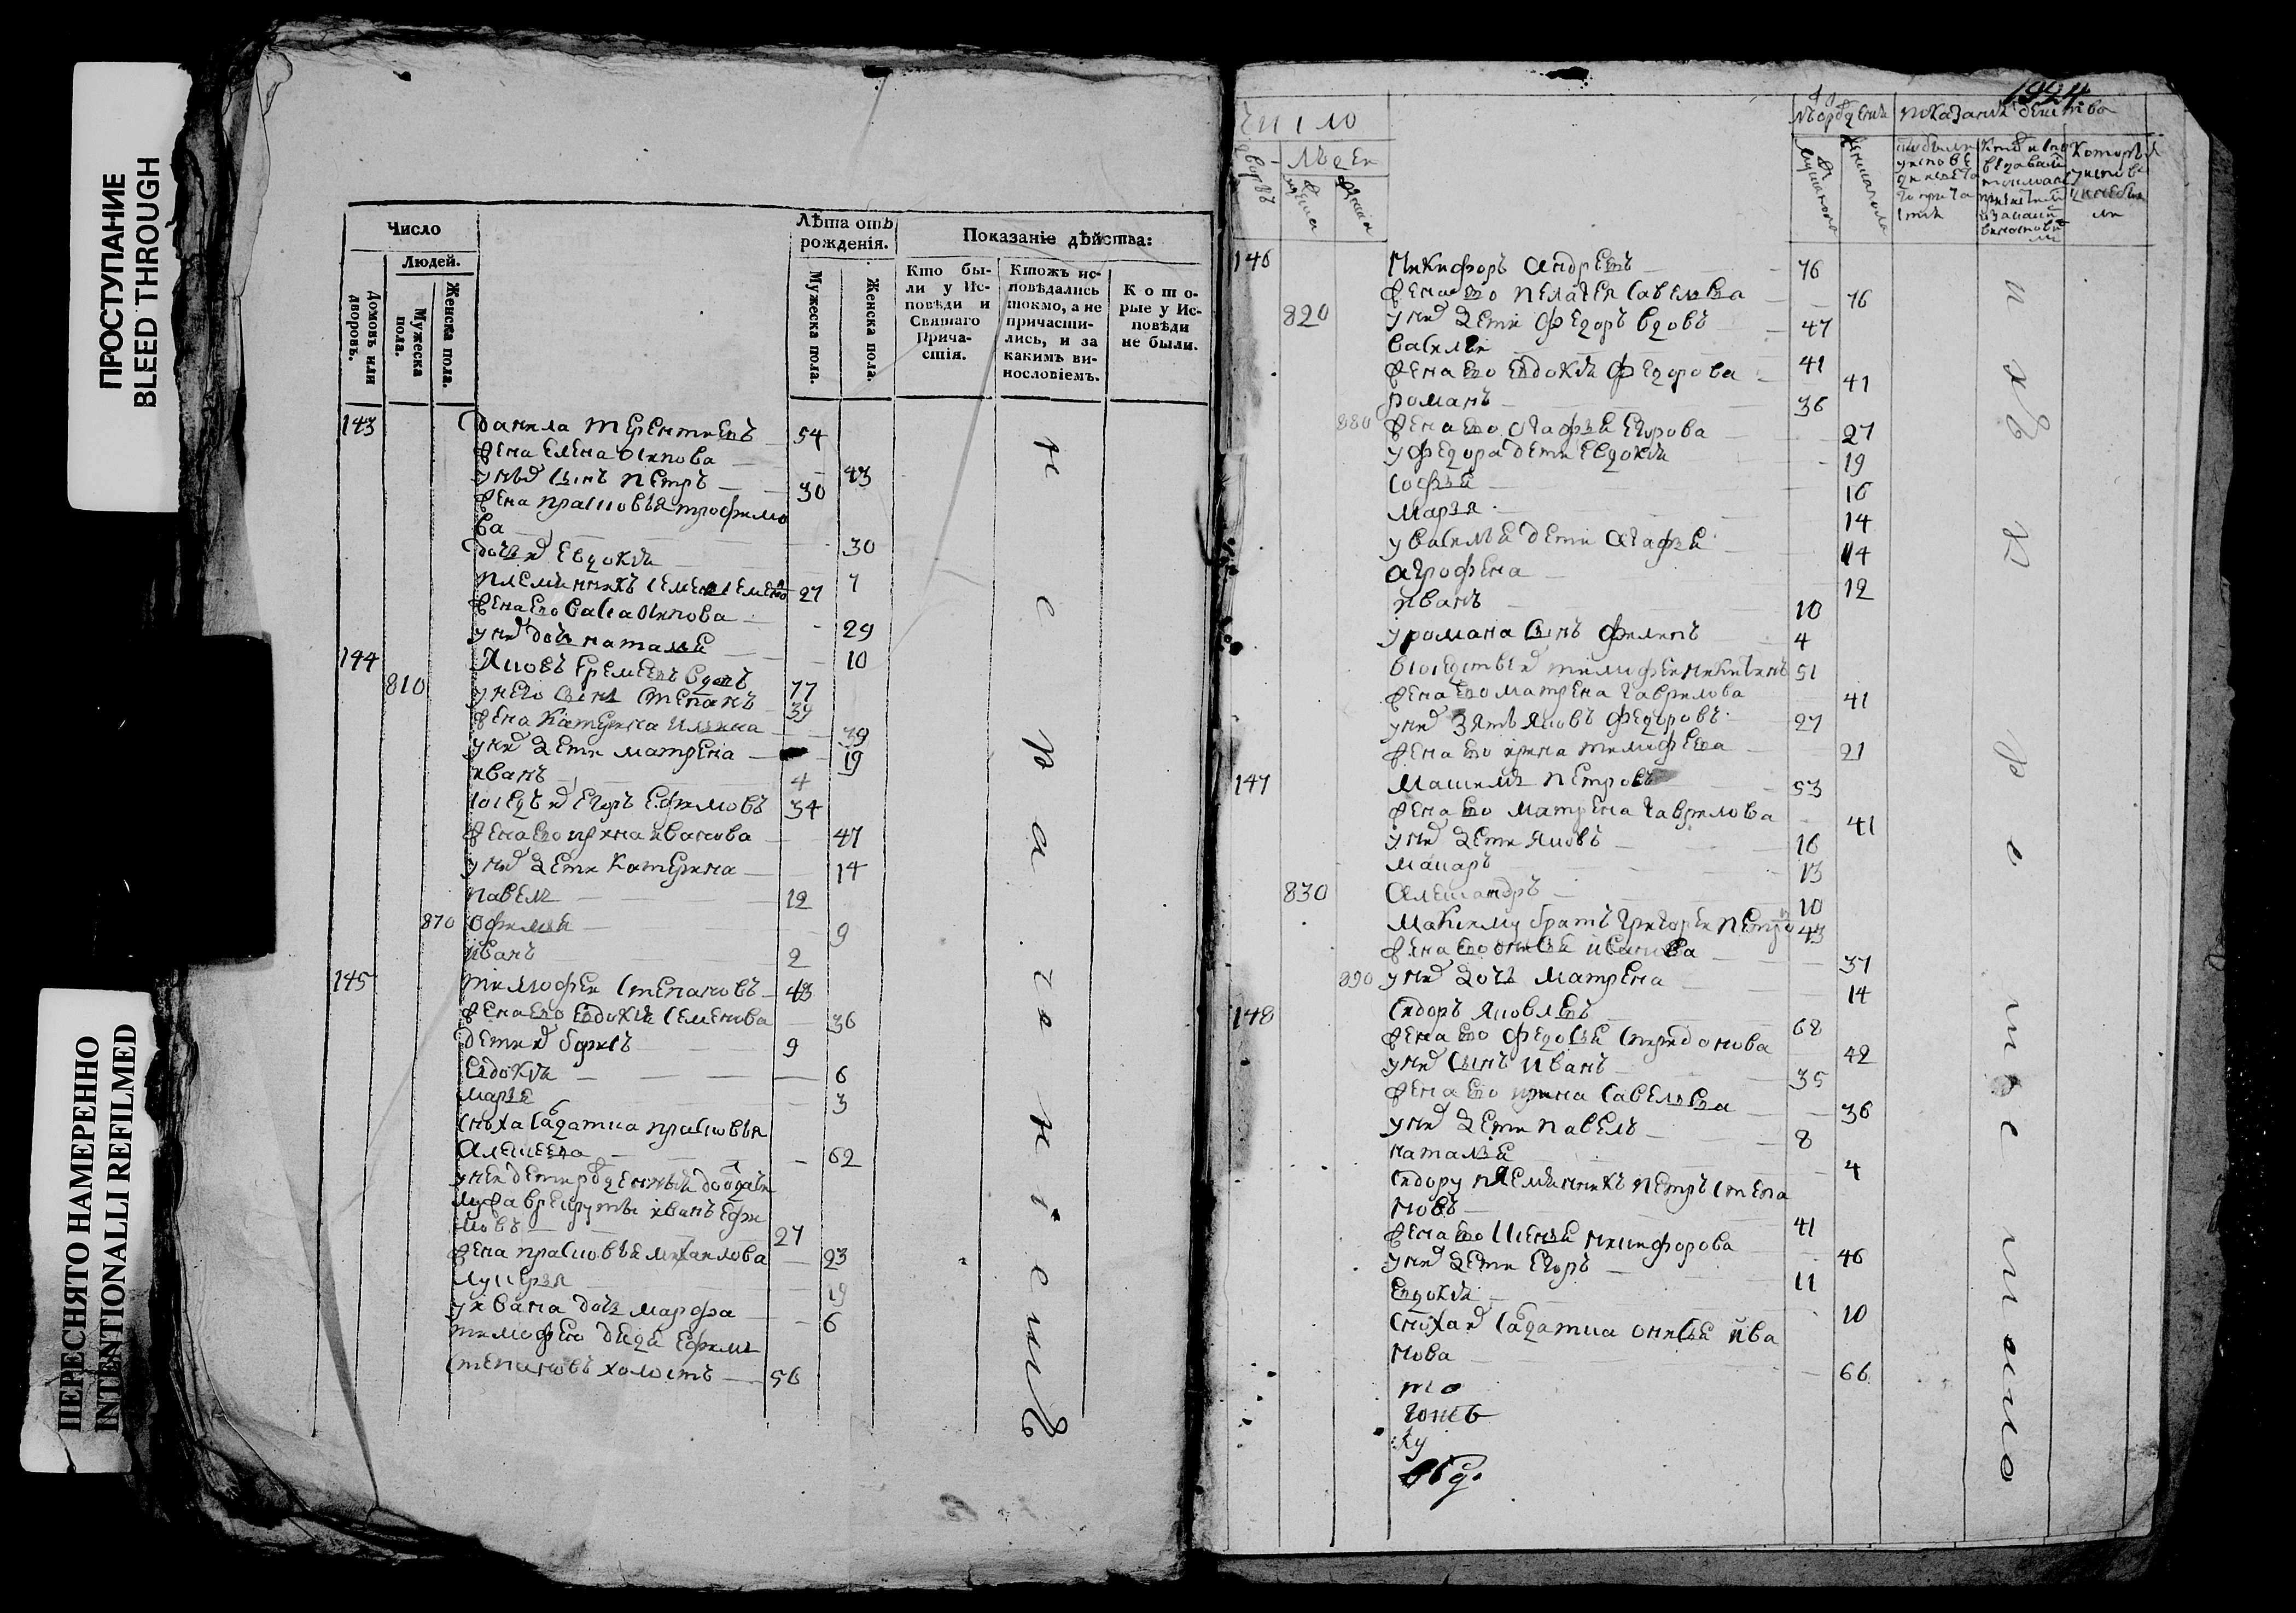 ПРОСТУПАНИЕ
BLEED THROUGH
ПЕРЕСНЯТО НАМЕРЕННО
INTENTIONALLI REFILMED
Число
Людей.
Домовъ или дворовъ.
Мужеска пола.
Женска пола.
Лѣта отъ рожденія.
Мужеска пола.
Женска пола.
Показаніе дѣйства:
Кто бы-
ли у Ис-
повѣди и
Святаго
Прича-
стія.
Ктожъ ис-
повѣдались
токмо, а не
причасти-
лись, и за
какимъ ви-
нословіемъ.
Кото-
рые у Ис-
повѣди
не были.
143 Данила Терентиевъ 54
жена Елена Осипова 43
у нихъ сынъ Петръ 30
жена Прасковья Трофимо
ва 30
дочь их Евдокия 7
племянникъ Семен Семено 27
жена ево Васса Осипова 29
у них дочь Наталья 10
144 Яковъ Еремеевъ вдовъ 77
810 у него сынъ Степанъ 39
жена Катерина Ильина 39
у них дети Матрена 19
Иванъ 4
соседъ их Егоръ Ефимовъ 34
жена ево Ирина Иванова 47
у них дети Катерина 14
Павелъ 12
870 Офимья 9
Иванъ 2
145 Тимофей Степановъ 43
жена ево Евдокия Семенова 36
дети их Борисъ 9
Евдокия 6
Марья 3
сноха салдатка Прасковья
Алексеева 62
Иванъ Ефи
мовъ 27
жена Прасковья Михайлова 23
Лукерья 19
у Ивана дочь Марфа 6
Тимофею дядя Ефимъ
Степановъ холостъ 56
1924
число
людей
показание действа
146 Никифоръ Андреевъ 76
жена ево Пелагея Савельева 76
820 у них дети Федоръ вдовъ 47
Василей 41
жена ево Евдокия Федорова 41
Романъ 36
880 жена ево Агафья Егорова 27
у Федора дети Евдокия 19
Софья 16
Марья 14
у Василья дети Агафья 14
Агрофена 12
Иванъ 10
у Романа сынъ Филипъ 4
в соседстве их Тимофей Никитинъ 51
жена ево Матрена Гаврилова 41
у них зять Яковъ Федоровъ 27
жена ево Ирина Тимофеева 21
147 Максимъ Петровъ 53
жена ево Матрена Гаврилова 41
у них дети Яковъ 16
Макаръ 13
830 Александръ 10
Максиму братъ Григорей Петровъ 43
жена ево Онисья Иванова 37
890 у них дочь Матрена 14
148 Сидоръ Яковлевъ 68
жена ево Федосья Спиридонова 42
у них сынъ Иванъ 35
жена ево Ирина Савельева 36
у них дети Павелъ 8
Наталья 4
Сидору племянникъ Петръ Степа
новъ 41
жена ево Ксенья Никифорова 46
у них дети Егоръ 11
Евдокия 10
сноха их салдатка Онисья Ива
нова 66